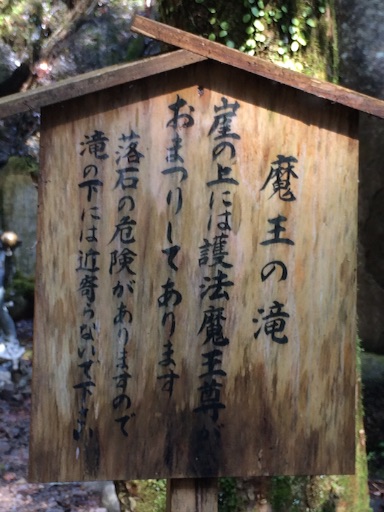 魔王の滝
崖の上には護法魔王尊が
おまつりしてあります
落石の危険がありますので
滝の下には近寄らないで下さい